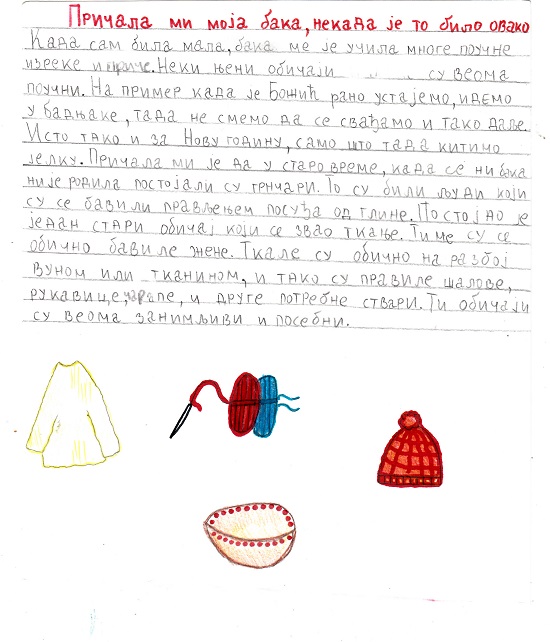 Причала ми моја бака, некада је то било овако
Када сам била мала, бака ме је учила многе поучне
изреке и приче. Неки њени обичаји су веома
поучни. На пример када је Божић рано устајемо, идемо
у бадњаке, тада не смемо да се свађамо и тако даље.
Исто тако и за Нову годину, само што тада китимо
јелку. Причала ми је да у старо време, када се ни бака
није родила постојали су грнчари. То су били људи који
су се бавили прављењем посуђа од глине. Постојао је
један стари обичај који се звао ткање. Тиме су се
обично бавиле жене. Ткале су обично на разбој
вуном или тканином, и тако су правиле шалове,
рукавице, и друге потребне ствари. Ти обичаји
су веома занимљиви и посебни.